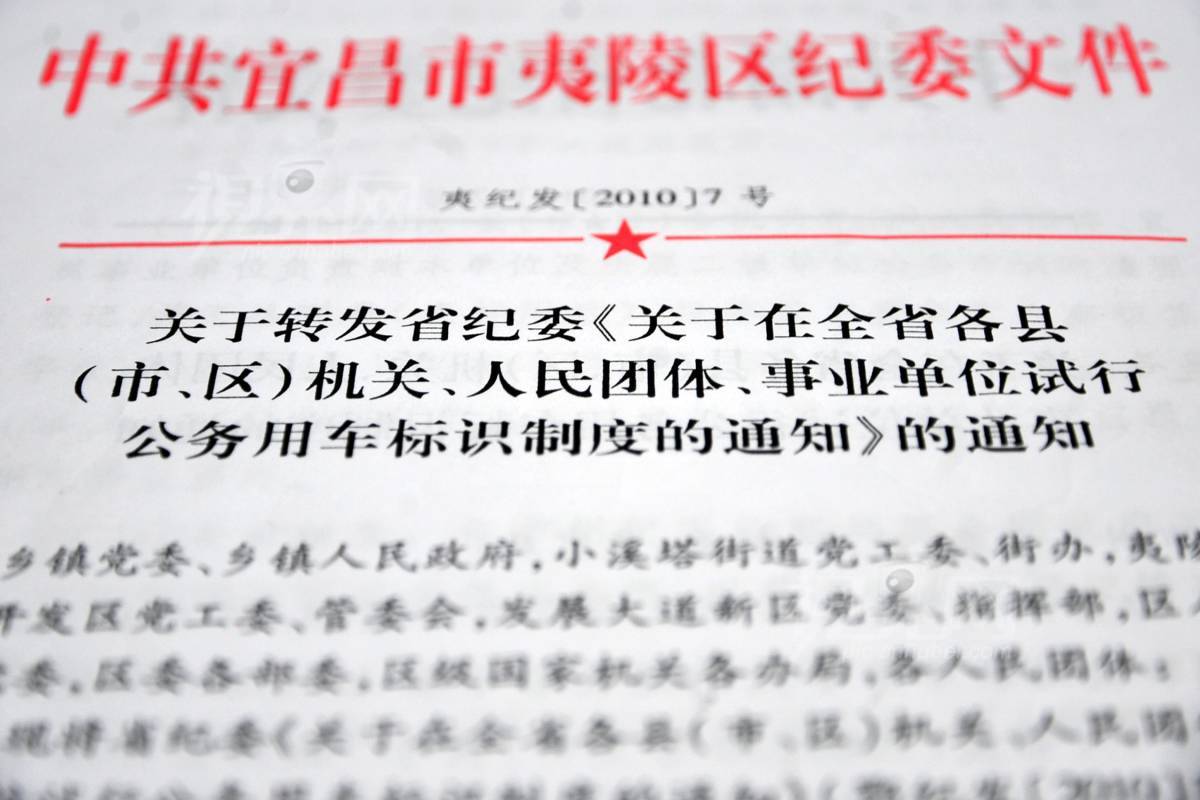 中共宜昌市夷陵区纪委文件
夷纪发[2010]7 号
关于转发省纪委《关于在全省各县
(市、区)机关、人民团体、事业单位试行
公务用车标识制度的通知》的通知
乡镇党委、乡镇人民政府,小溪塔街道党工委、街办,夷陵
开发区党工委、管委会,发展大道新区党委、指挥部,区
党委,区委各部委,区级国家机关各办局,各人民团体:
现将省纪委《关于在全省各县(市、区)机关、人民团
试行公务用车标识制度的通知》(鄂纪发[2010]